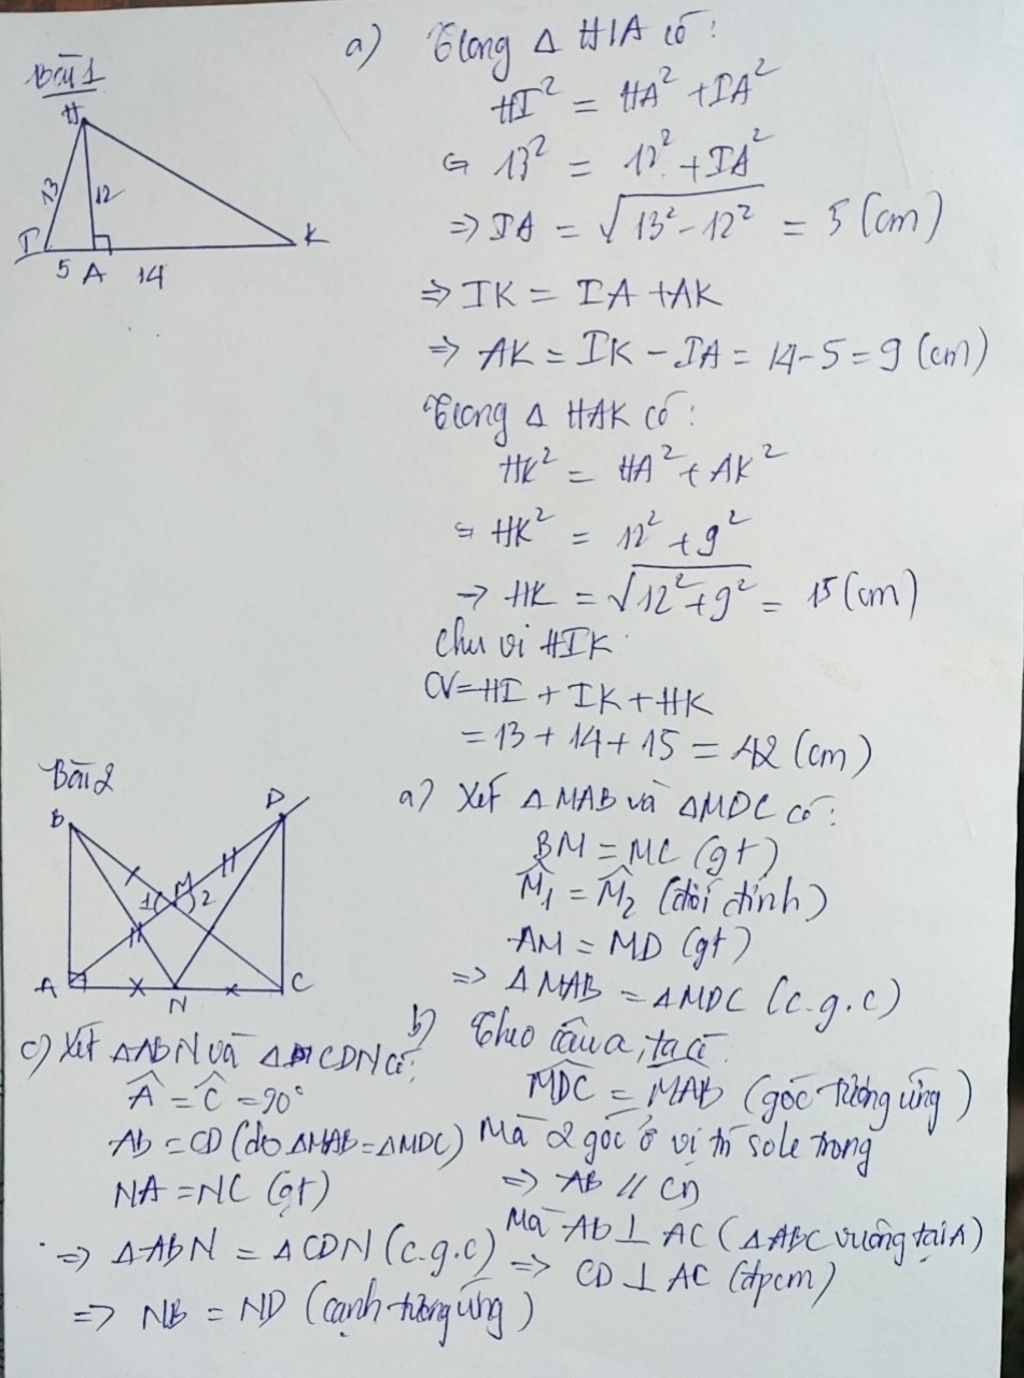 Bài 1
H
13
12
I
5
A
14
K
a) Trong Δ HIA có:
HI² = HA² + IA²
⇔ 13² = 12² + IA²
⇒ IA = √13² - 12² = 5 (cm)
⇒ IK = IA + AK
⇒ AK = IK - IA = 14 - 5 = 9 (cm)
Trong Δ HAK có:
HK² = HA² + AK²
⇔ HK² = 12² + 9²
→ HK = √12² + 9² = 15 (cm)
Chu vi HIK
CV = HI + IK + HK
= 13 + 14 + 15 = 42 (cm)
Bài 2
B
D
M
1
2
A
N
C
a) Xét Δ MAB và Δ MDC có:
BM = MC (gt)
M̂₁ = M̂₂ (đối đỉnh)
AM = MD (gt)
⇒ Δ MAB = Δ MDC (c.g.c)
b) Theo câu a, ta có
MDC = MAB (góc tương ứng)
Mà 2 góc ở vị trí sole trong
⇒ AB // CD
Mà AB ⊥ AC (Δ ABC vuông tại A)
⇒ CD ⊥ AC (đpcm)
c) Xét Δ ABN và Δ CDN có:
Â = Ĉ = 90°
AB = CD (do Δ MAB = Δ MDC)
NA = NC (gt)
⇒ Δ ABN = Δ CDN (c.g.c)
⇒ NB = ND (cạnh tương ứng)